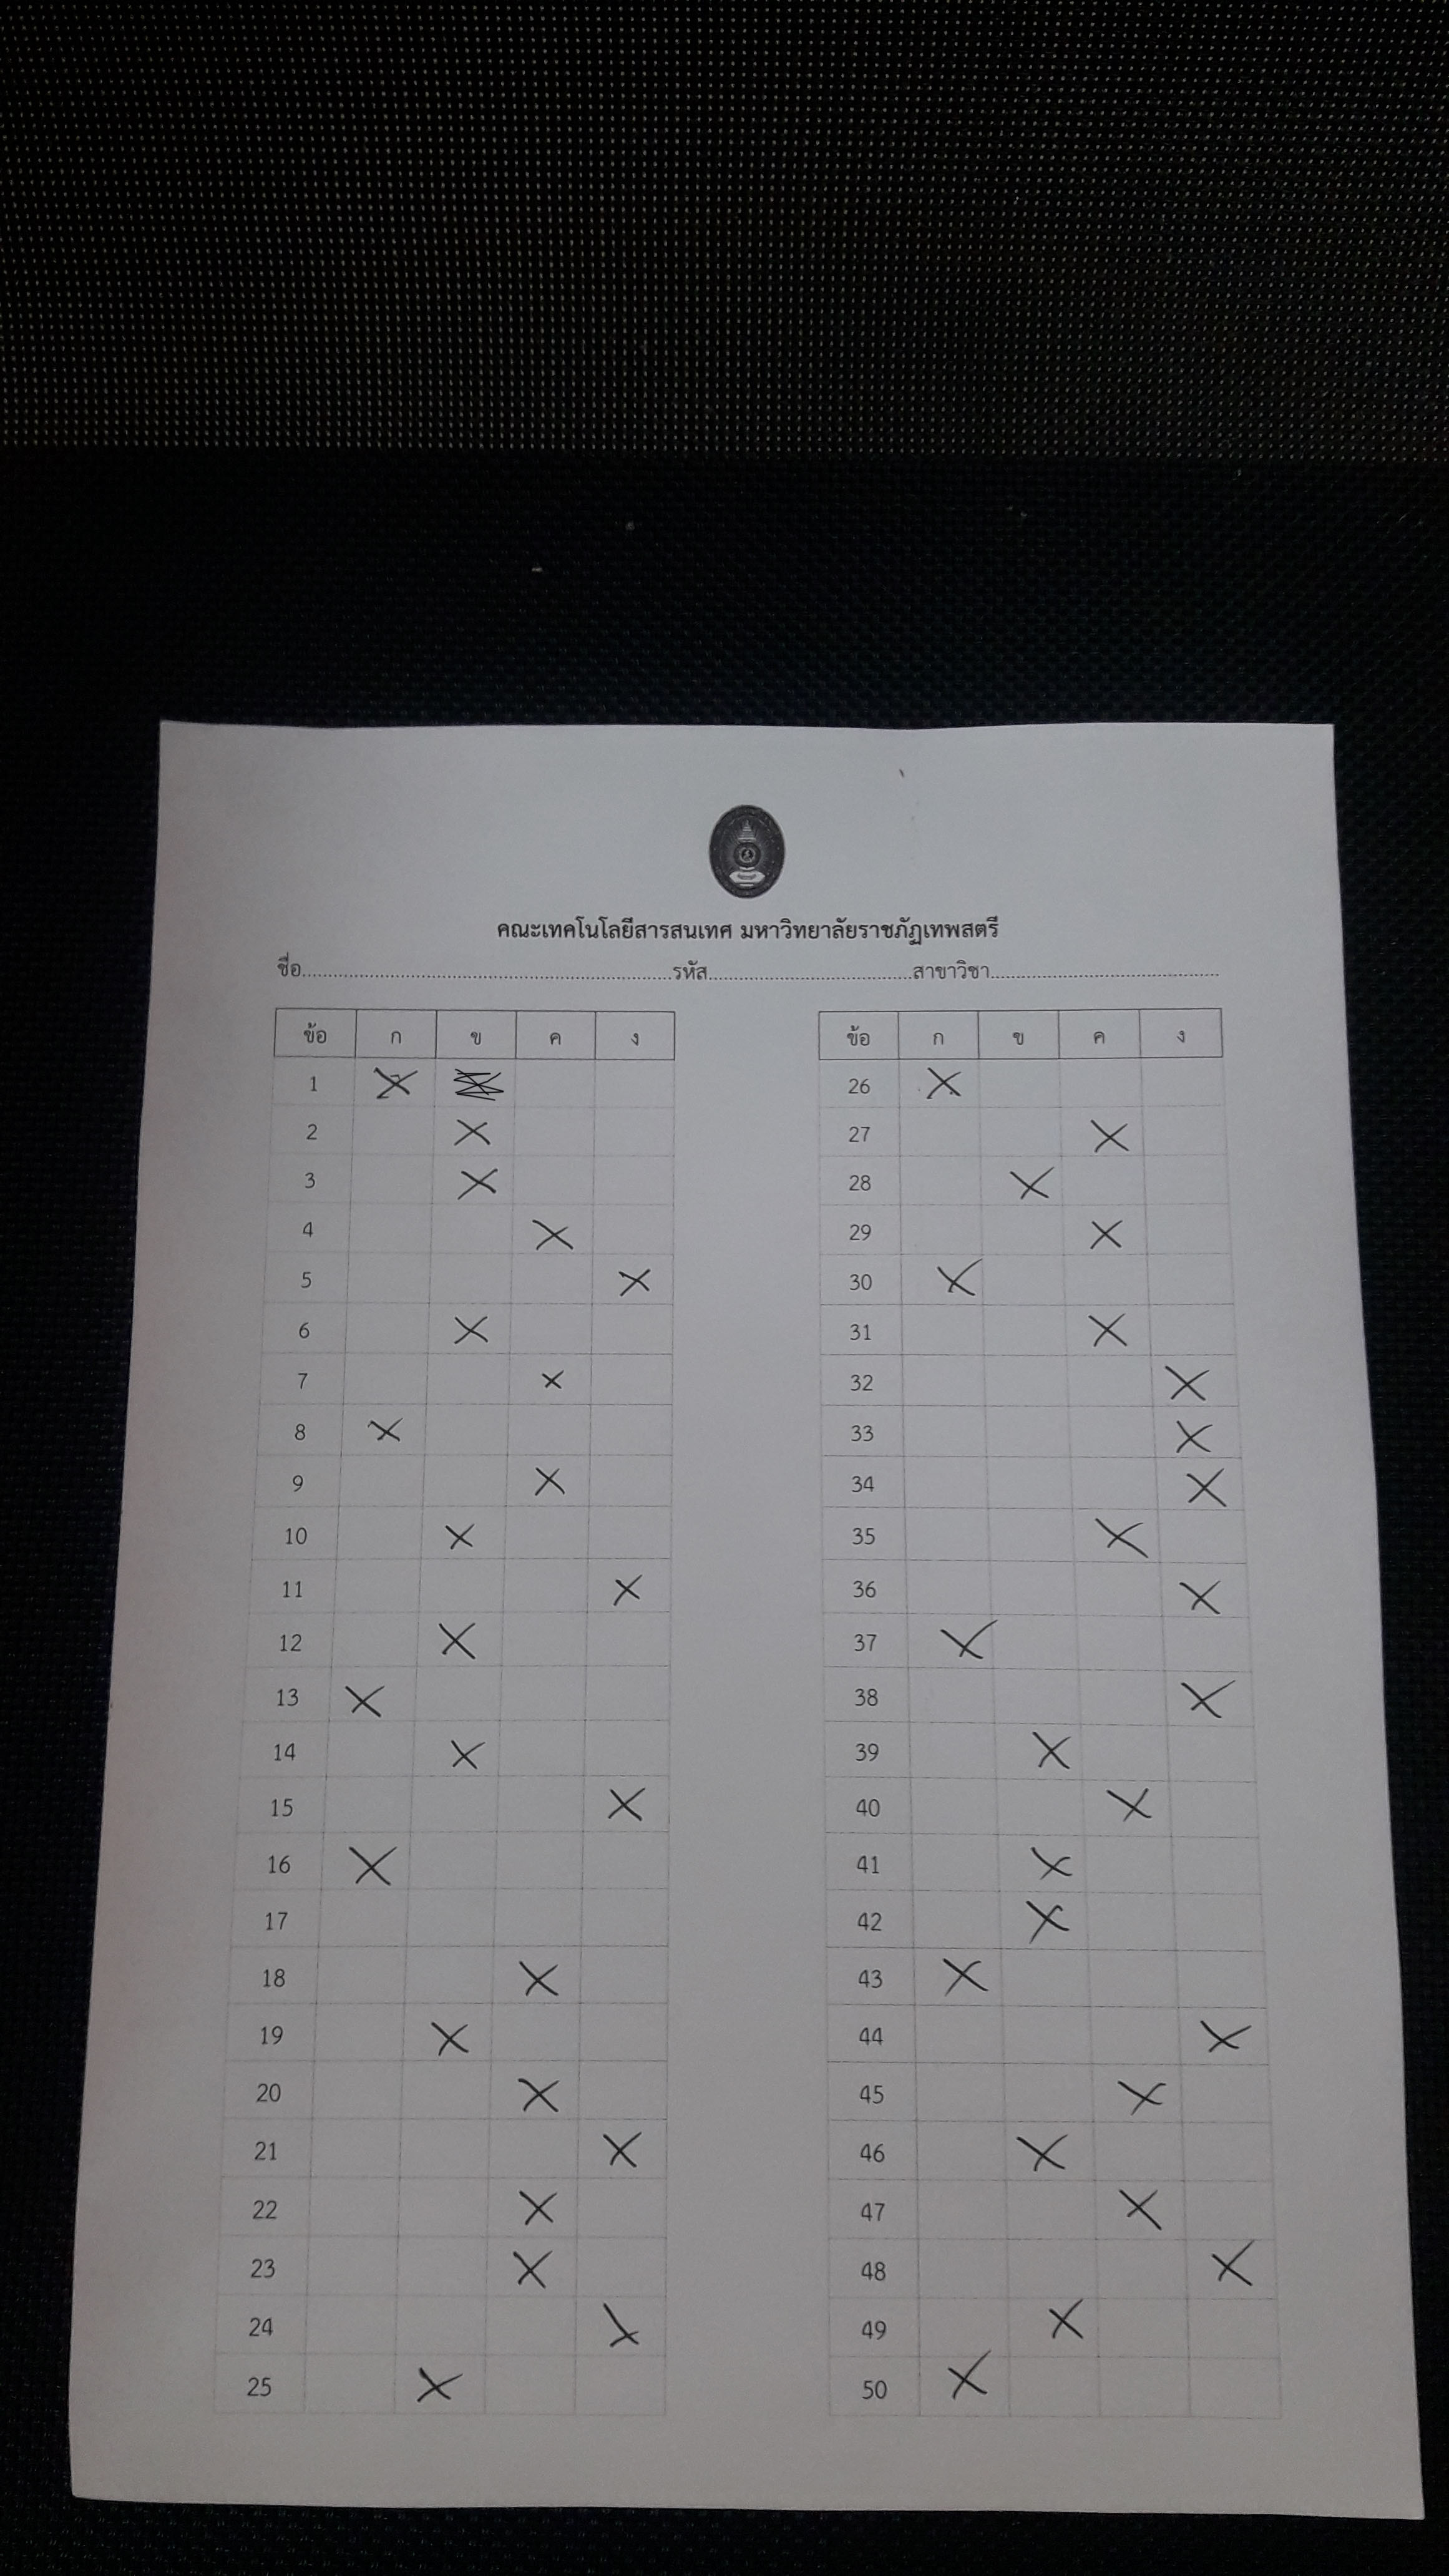 คณะเทคโนโลยีสารสนเทศ มหาวิทยาลัยราชภัฏเทพสตรี
ชื่อ.......................................................รหัส..............................สาขาวิชา...................................
ข้อ ก ข ค ง
1 X
2 X
3 X
4 X
5 X
6 X
7 X
8 X
9 X
10 X
11 X
12 X
13 X
14 X
15 X
16 X
17
18 X
19 X
20 X
21 X
22 X
23 X
24 X
25 X
ข้อ ก ข ค ง
26 X
27 X
28 X
29 X
30 X
31 X
32 X
33 X
34 X
35 X
36 X
37 X
38 X
39 X
40 X
41 X
42 X
43 X
44 X
45 X
46 X
47 X
48 X
49 X
50 X